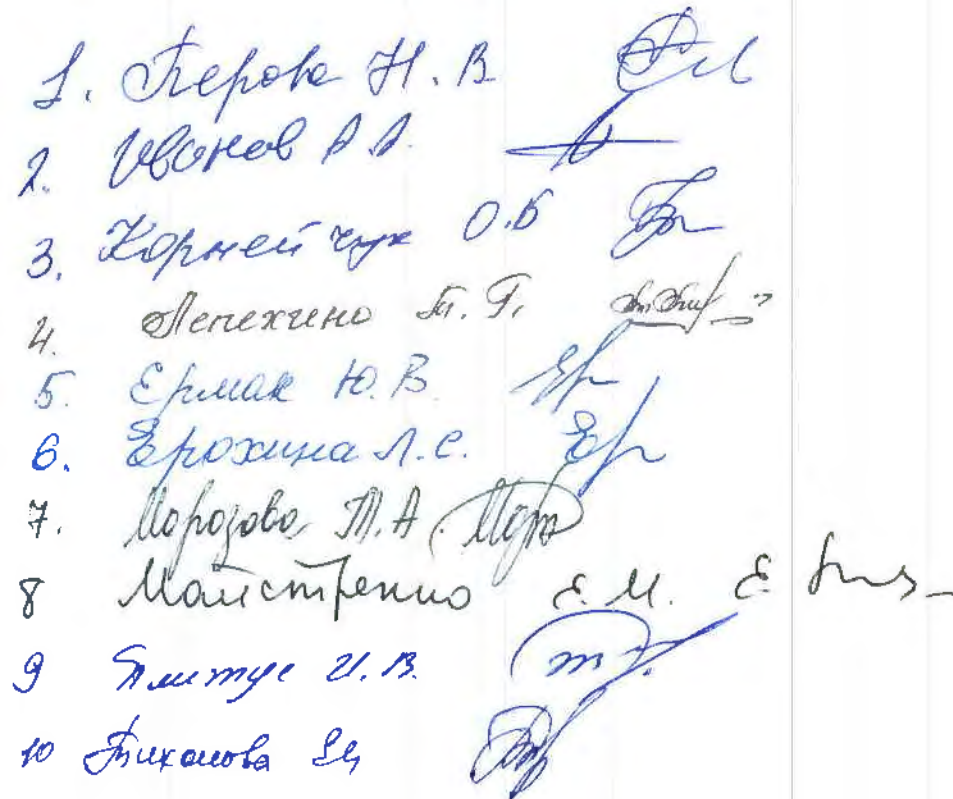 1. Перова Н.В
2. Иванов А.А.
3. Корнейчук О.Б
4. Лепехина Т.Г.
5. Ермак Ю.В.
6. Ерохина Л.С.
7. Морозова Т.А
8 Майстренко Е.М.
9 И.В.
10 Тихонова